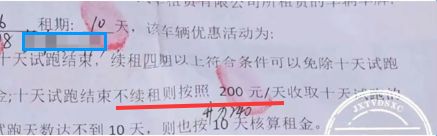 有限公司所租赁的车辆
租期: 10 天，该车辆优惠活动为:
十天试跑结束，续租四期以上符合条件可以免除十天试跑
金;十天试跑结束不续租则按照 200 元/天收取十天
试跑天数达不到 10 天，则也按 10 天核算租金。
JXTVDSXC